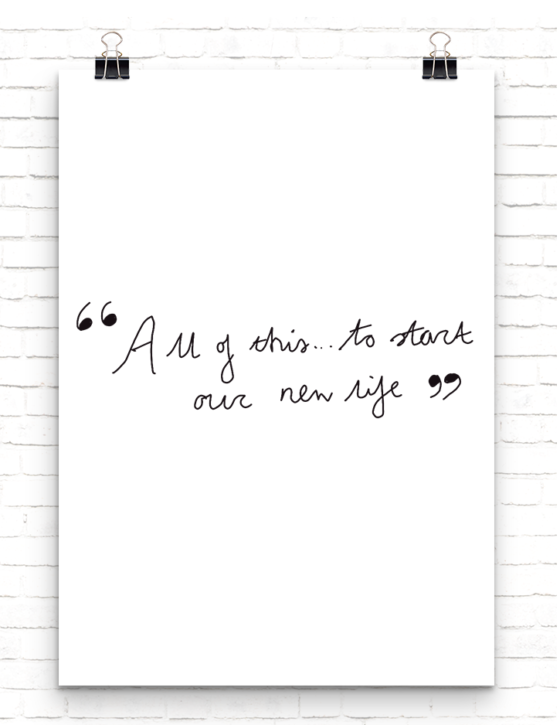 “ All of this... to start
our new life ”